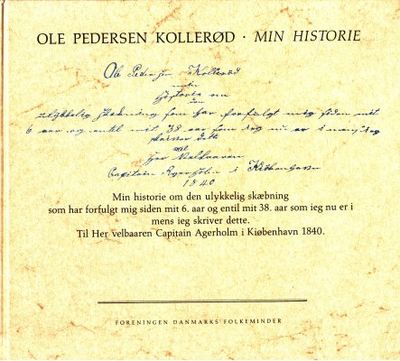 OLE PEDERSEN KOLLERØD · MIN HISTORIE
Ole Pedersen Kollerød
min
historie om
den
ulykkelig skæbning som har forfulgt mig siden mit
6 aar og entil mit 38 aar som ieg nu er i mens ieg
skriver dette
til
Her Velbaaren
Capitain Agerholm i Kiøbenhavn
1840
Min historie om den ulykkelig skæbning
som har forfulgt mig siden mit 6. aar og entil mit 38. aar som ieg nu er i
mens ieg skriver dette.
Til Her velbaaren Capitain Agerholm i Kiøbenhavn 1840.
FORENINGEN DANMARKS FOLKEMINDER